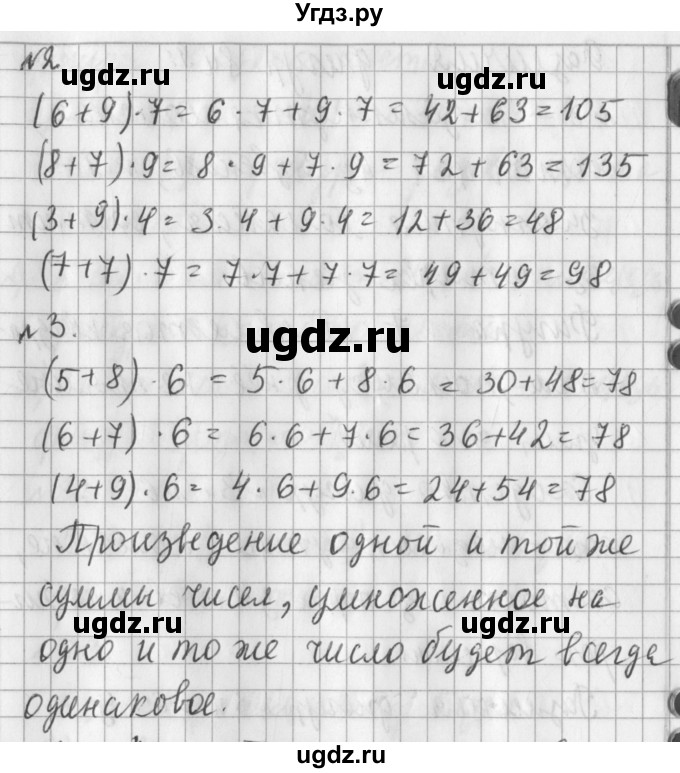 Угдз.ру
№2
ugdz.ru ugdz.ru
(6+9)·7= 6·7+9·7= 42+63=105
(8+7)·9= 8·9+7·9=72+63=135
(3+9)·4=3·4+9·4=12+36=48
(7+7)·7= 7·7+7·7= 49+49=98
№3.
ugdz.ru
(5+8)·6 = 5·6+8·6 = 30+48=78
(6+7)·6= 6·6+7·6=36+42=78
(4+9)·6= 4·6+9·6=24+54=78
Произведение одной и той же
суммы чисел, умноженное на
ugdz.ru ugdz.ru
одно и то же число будет всегда
одинаковое.
ugdz.ru